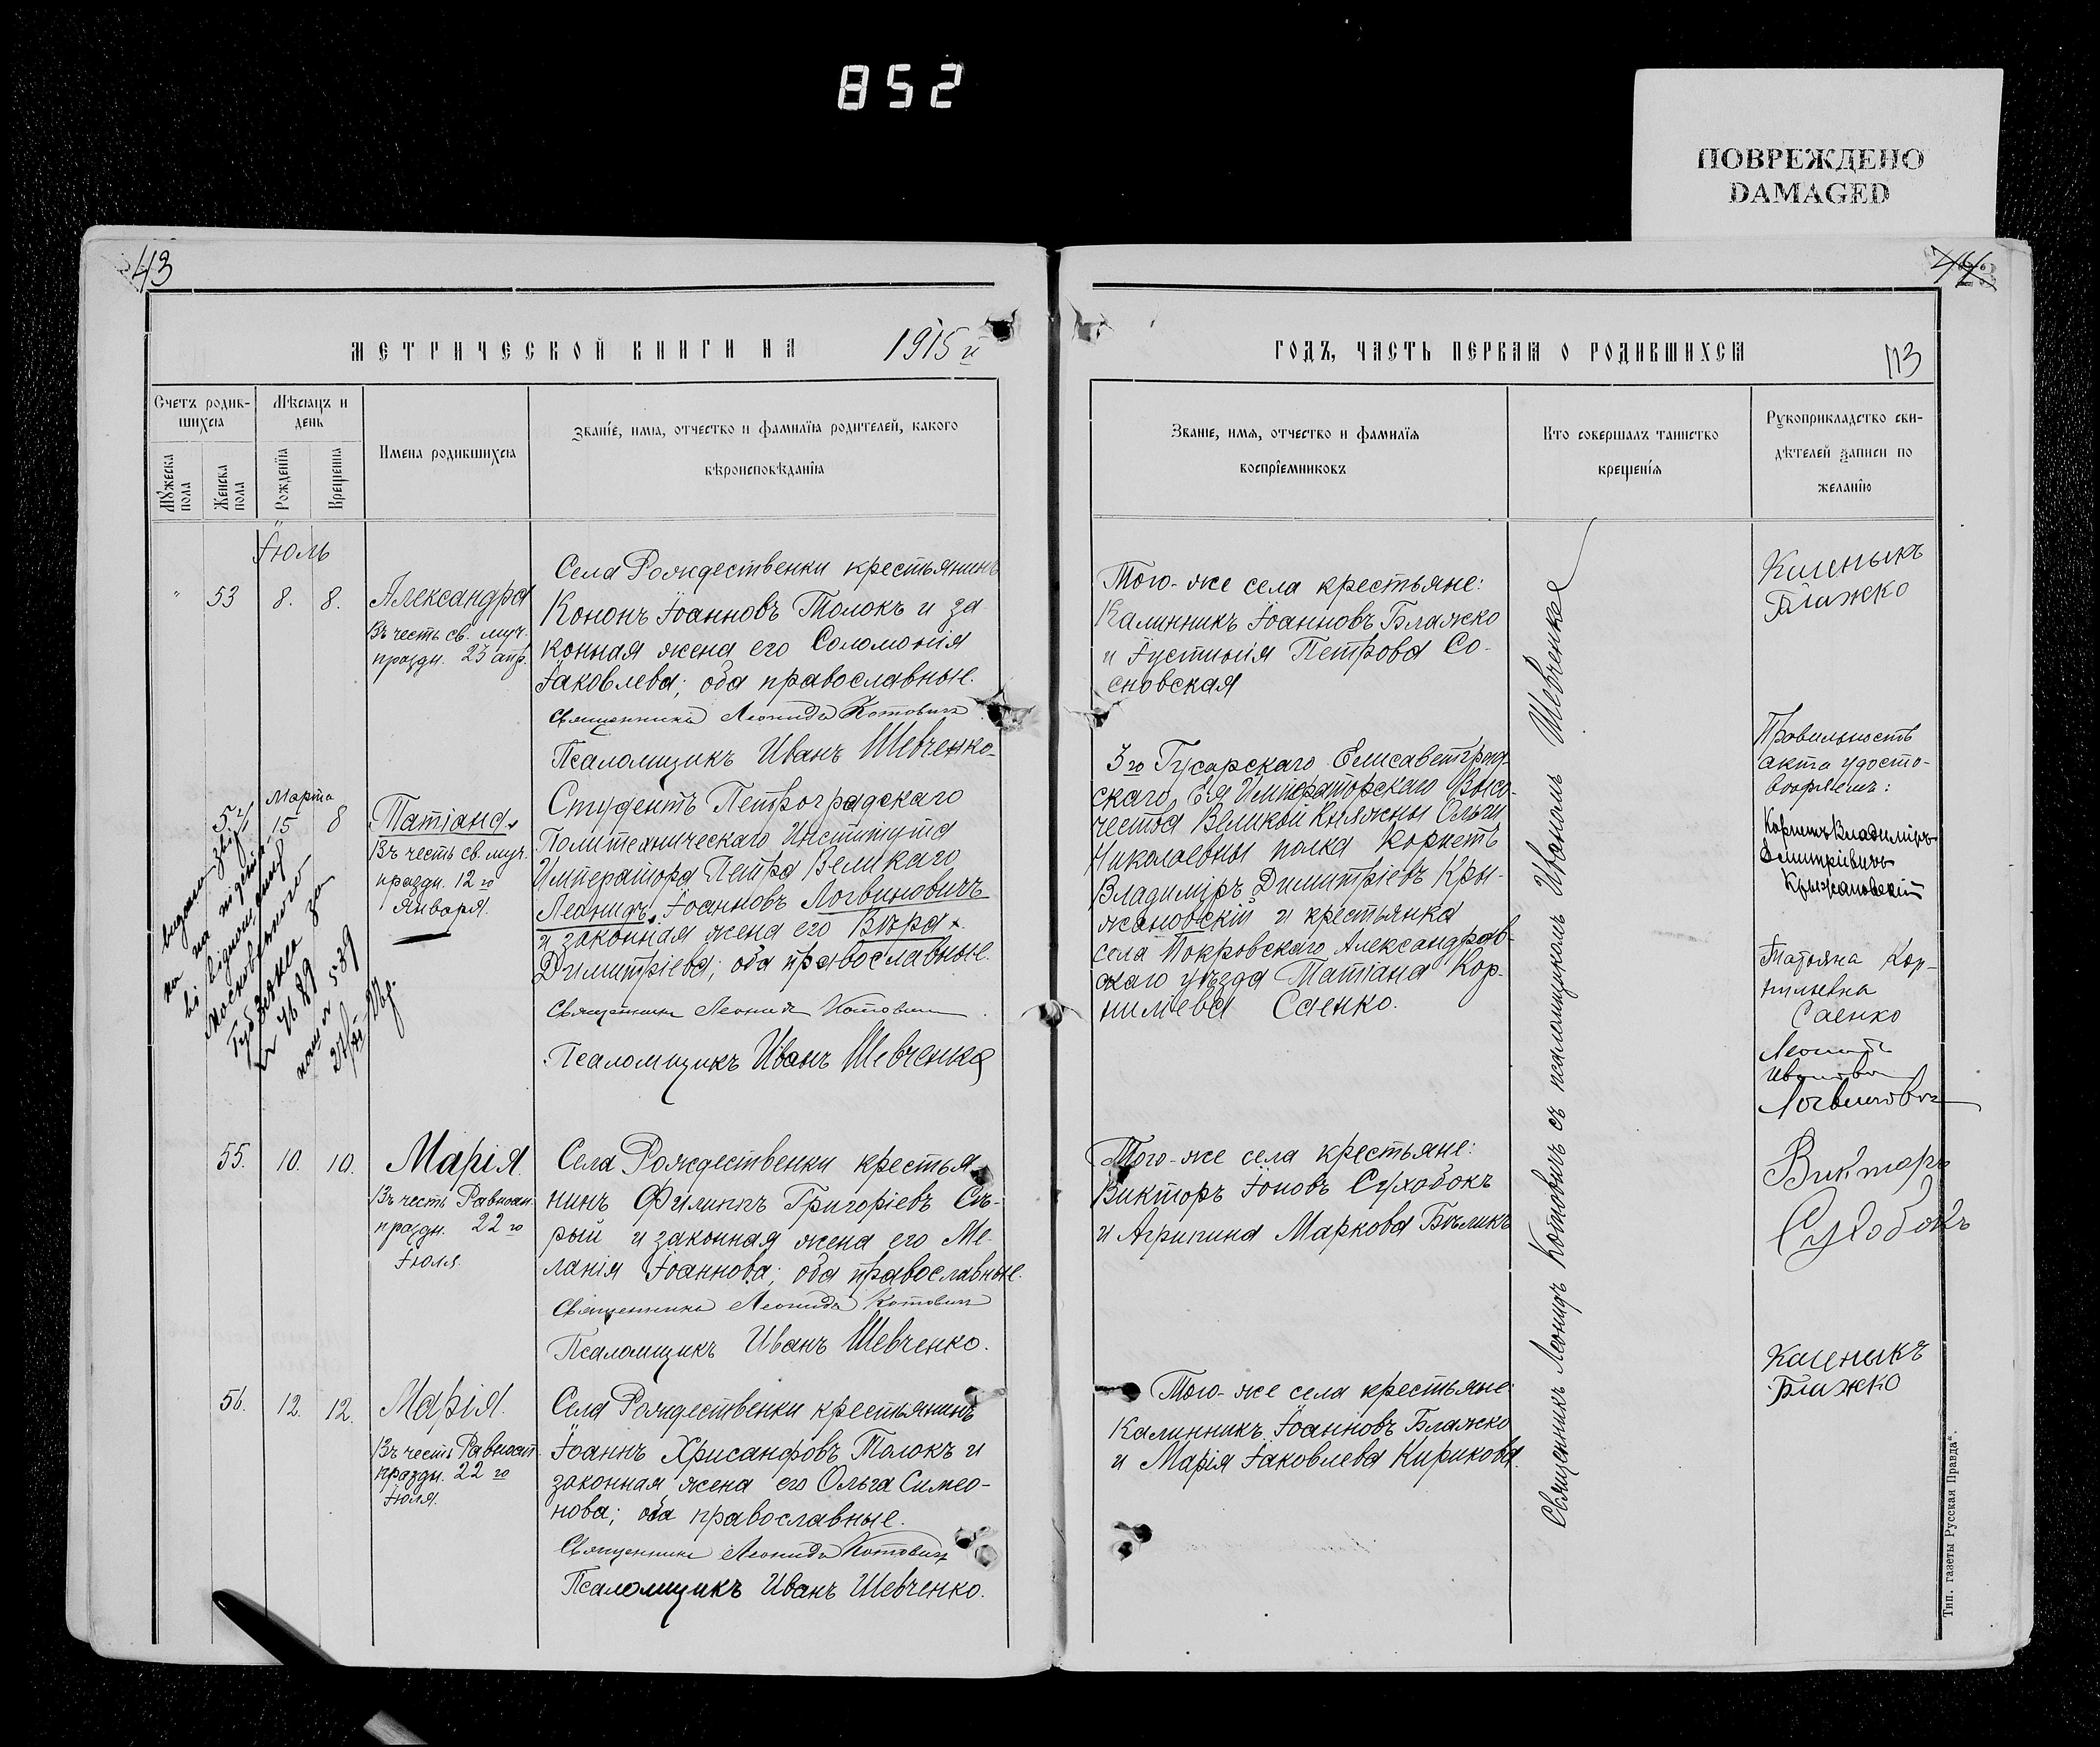 852
ПОВРЕЖДЕНО
DAMAGED
43
МЕТРИЧЕСКОЙ КНИГИ НА 1915 й
Счетъ родив-
шихся
Мѣсяцъ и
день
Мужеска
пола
Женска
пола
Рожденїя
Крещенїя
Имена родившихся
Званїе, имя, отчество и фамилїя родителей, какого
вѣроисповѣданїя
Іюль
" 53 8. 8.
Александра
Въ честь св. муч.
праздн. 23 апр.
Села Рождественки крестьянинъ
Кононъ Іоанновъ Толокъ и за
конная жена его Соломонія
Іаковлева; оба православные.
Священникъ Леонидъ Котовичъ
Псаломщикъ Иванъ Шевченко
54 Марта 15 8
Татіана
Въ честь св. муч.
праздн. 12 го
Января.
Студентъ Петроградскаго
Политехническаго Института
Императора Петра Великаго
Леонидъ Іоанновъ Логвиновичъ
и законная жена его Вѣра
Димитріева; оба православные.
Священникъ Леонидъ Котовичъ
Псаломщикъ Иванъ Шевченко
Московського
за
539
55. 10. 10.
Марія.
Въ честь Равноап.
праздн. 22 го
Іюля.
Села Рождественки крестья-
нинъ Филиппъ Григоріевъ Сѣ-
рый и законная жена его Ме-
ланія Іоаннова; оба православные.
Священникъ Леонидъ Котовичъ
Псаломщикъ Иванъ Шевченко.
56. 12. 12.
Марія.
Въ честь Равноап.
праздн. 22 го
Іюля.
Села Рождественки крестьянинъ
Іоаннъ Хрисанфовъ Толокъ и
законная жена его Ольга Симео-
нова; оба православные.
Священникъ Леонидъ Котовичъ
Псаломщикъ Иванъ Шевченко.
ГОДЪ, ЧАСТЬ ПЕРВАЯ О РОДИВШИХСЯ
113
Званїе, имя, отчество и фамилїя
воспрїемниковъ
Кто совершалъ таинство
крещенїя
Рукоприкладство сви-
дѣтелей записи по
желанїю
Того-же села крестьяне:
Калинникъ Іоанновъ Блажко
и Іустинія Петрова Со-
сновская
3 го Гусарскаго Елисаветград-
скаго, Ея Императорскаго Высо-
чества Великой Княжны Ольги
Николаевны полка Корнетъ
Владиміръ Димитріевъ Кры-
жановскій и крестьянка
села Покровскаго Александров-
скаго уѣзда Татіана Кор-
нилиева Саенко.
Того-же села крестьяне:
Викторъ Іоновъ Сухобокъ
и Агрипина Маркова Бѣликъ
Того-же села крестьяне:
Калинникъ Іоанновъ Блажко
и Марія Іаковлева Кирикова.
Священникъ Леонидъ Котовичъ съ псаломщикомъ Иваномъ Шевченкая
Каленыкъ
Блажко
Правильность
акта удосто-
воряемъ:
Корнетъ Владиміръ
Дмитріевичъ
Крыжановскій
Татьяна Кор-
нильевна
Саенко
Леонидъ
Ивановичъ
Логвиновичъ
Викторъ
Сухобокъ
Каленыкъ
Блажко
Тип. газеты Русская Правда".